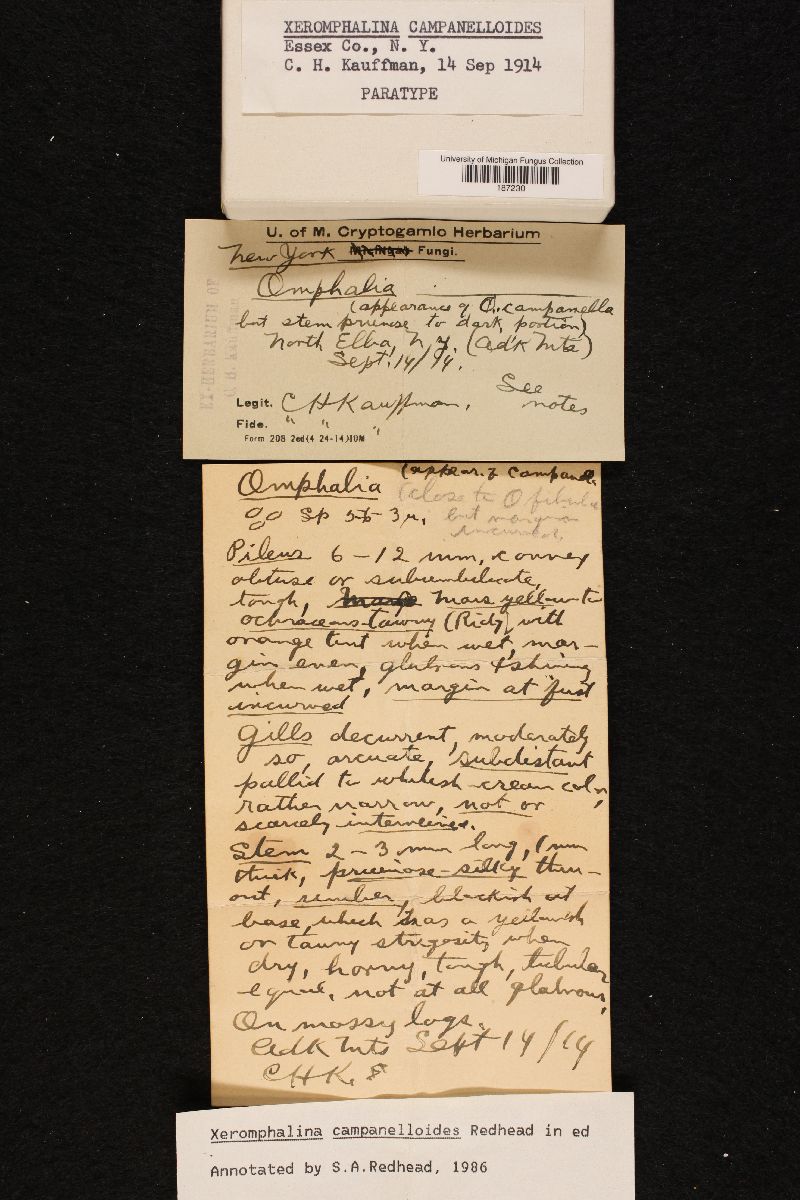 XEROMPHALINA CAMPANELLOIDES
Essex Co., N. Y.
C. H. Kauffman, 14 Sep 1914
PARATYPE
University of Michigan Fungus Collection
187230
U. of M. Cryptogamic Herbarium
New York Michigan Fungi.
Omphalia
(appearance of O. campanella
but stem pruinose to dark portion)
North Elba, N.Y. (Adk Mts)
Sept. 14/14.
See
notes
Legit. C H Kauffman.
Fide. " " "
Form 208 2ed(4 24-14)10M
EX-HERBARIUM OF
Omphalia (appear. of campanel.
(close to O fibula
Sp 5-6 - 3 µ. but margin
incurved.
Pileus 6 - 12 mm, convex
obtuse or subumbilicate,
tough, Mars yellow to
ochraceous-tawny (Ridg) with
orange tint when wet, mar-
gin even, glabrous & shining
when wet, margin at first
incurved
Gills decurrent, moderately
so, arcuate, subdistant
pallid to whitish-cream color,
rather narrow, not or
scarcely interveined.
Stem 2 - 3 mm long, 1 mm
thick, pruinose-silky thru-
out, umber, blackish at
base, which has a yellowish
or tawny strigosity when
dry, horny, tough, tubular
equal, not at all glabrous,
On mossy logs.
Adk Mts Sept 14/14
CHK.
Xeromphalina campanelloides Redhead in ed
Annotated by S.A.Redhead, 1986